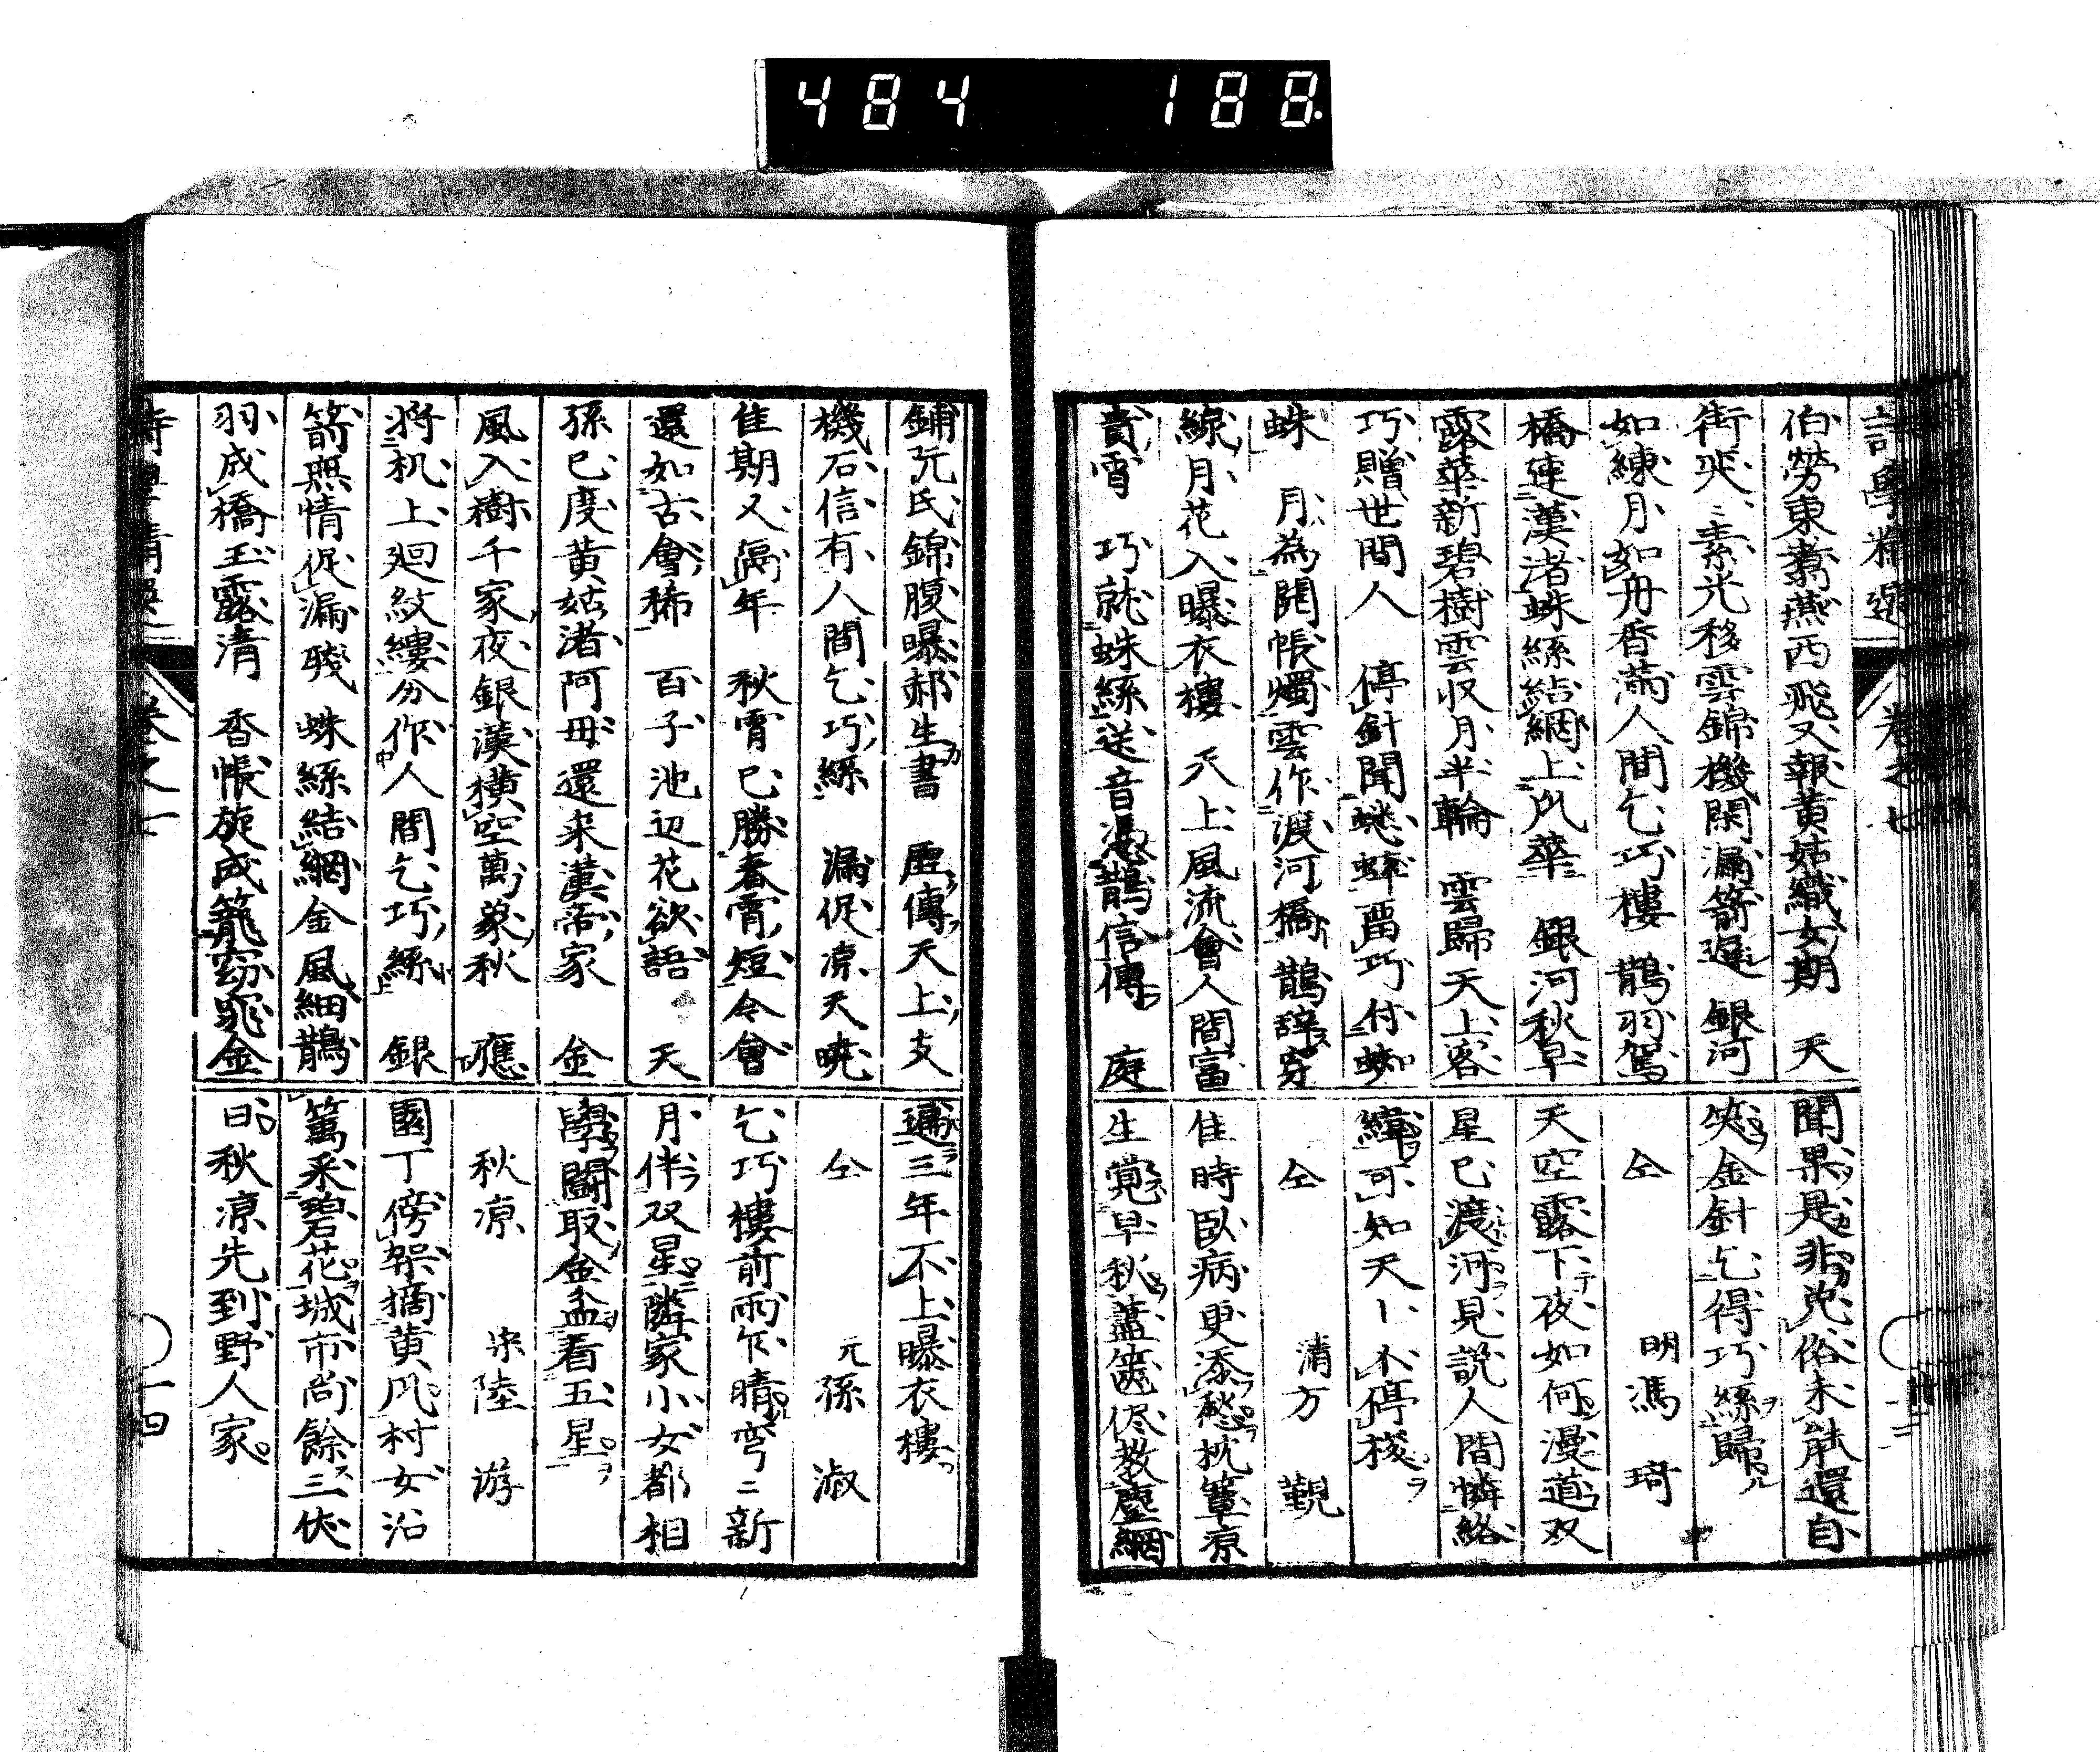 484 188
詩學精選 卷之七
伯勞東翥燕西飛又報黄姑織女期 天
街灭〻素光移雲錦機閑漏箭遲 銀河
如練月如舟香滿人間乞巧樓 鵲羽駕
橋連漢渚蛛絲結網上爪華 銀河秋早
露華新碧樹雲収月半輪 雲歸天上客
巧贈世間人 停針聞蟋蟀畱巧付蜘
蛛 月為開帳燭雲作渡河橋 鵲辞穿
線月花入曝衣樓 天上風流會人間富
貴宵 巧就蛛絲送音憑鵲信傳 庭
聞果是非免俗未能還自
笑金針乞得巧絲歸
仝 明馮 琦
天空露下夜如何漫道双
星已渡河見説人間憐絡
緯可知天上不停梭
仝 清方 覲
佳時臥病更添愁枕簟凉
生覚早秋蓋篋侭教塵網
鋪阮氏錦腹曝郝生書 虚傳天上支
機石信有人間乞巧絲 漏促凉天曉
佳期又隔年 秋宵已勝春宵短今會
還如古會稀 百子池辺花欲語 天
孫已度黄姑渚阿母還来漢帝家 金
風入樹千家夜銀漢横空萬象秋 應
将机上廻紋縷分作人間乞巧絲 銀
箭無情促漏殘 蛛絲結網金風細鵲
羽成橋玉露清 香帳簇成籠窈窕金
遍三年不上曝衣樓
仝 元孫 淑
乞巧樓前雨乍晴弯〻新
月伴双星隣家小女都相
學闘取金盆看五星
秋凉 宋陸 游
園丁傍架摘黄爪村女沿
篱采碧花城市尚餘三伏
日秋凉先到野人家
卷之七 一四